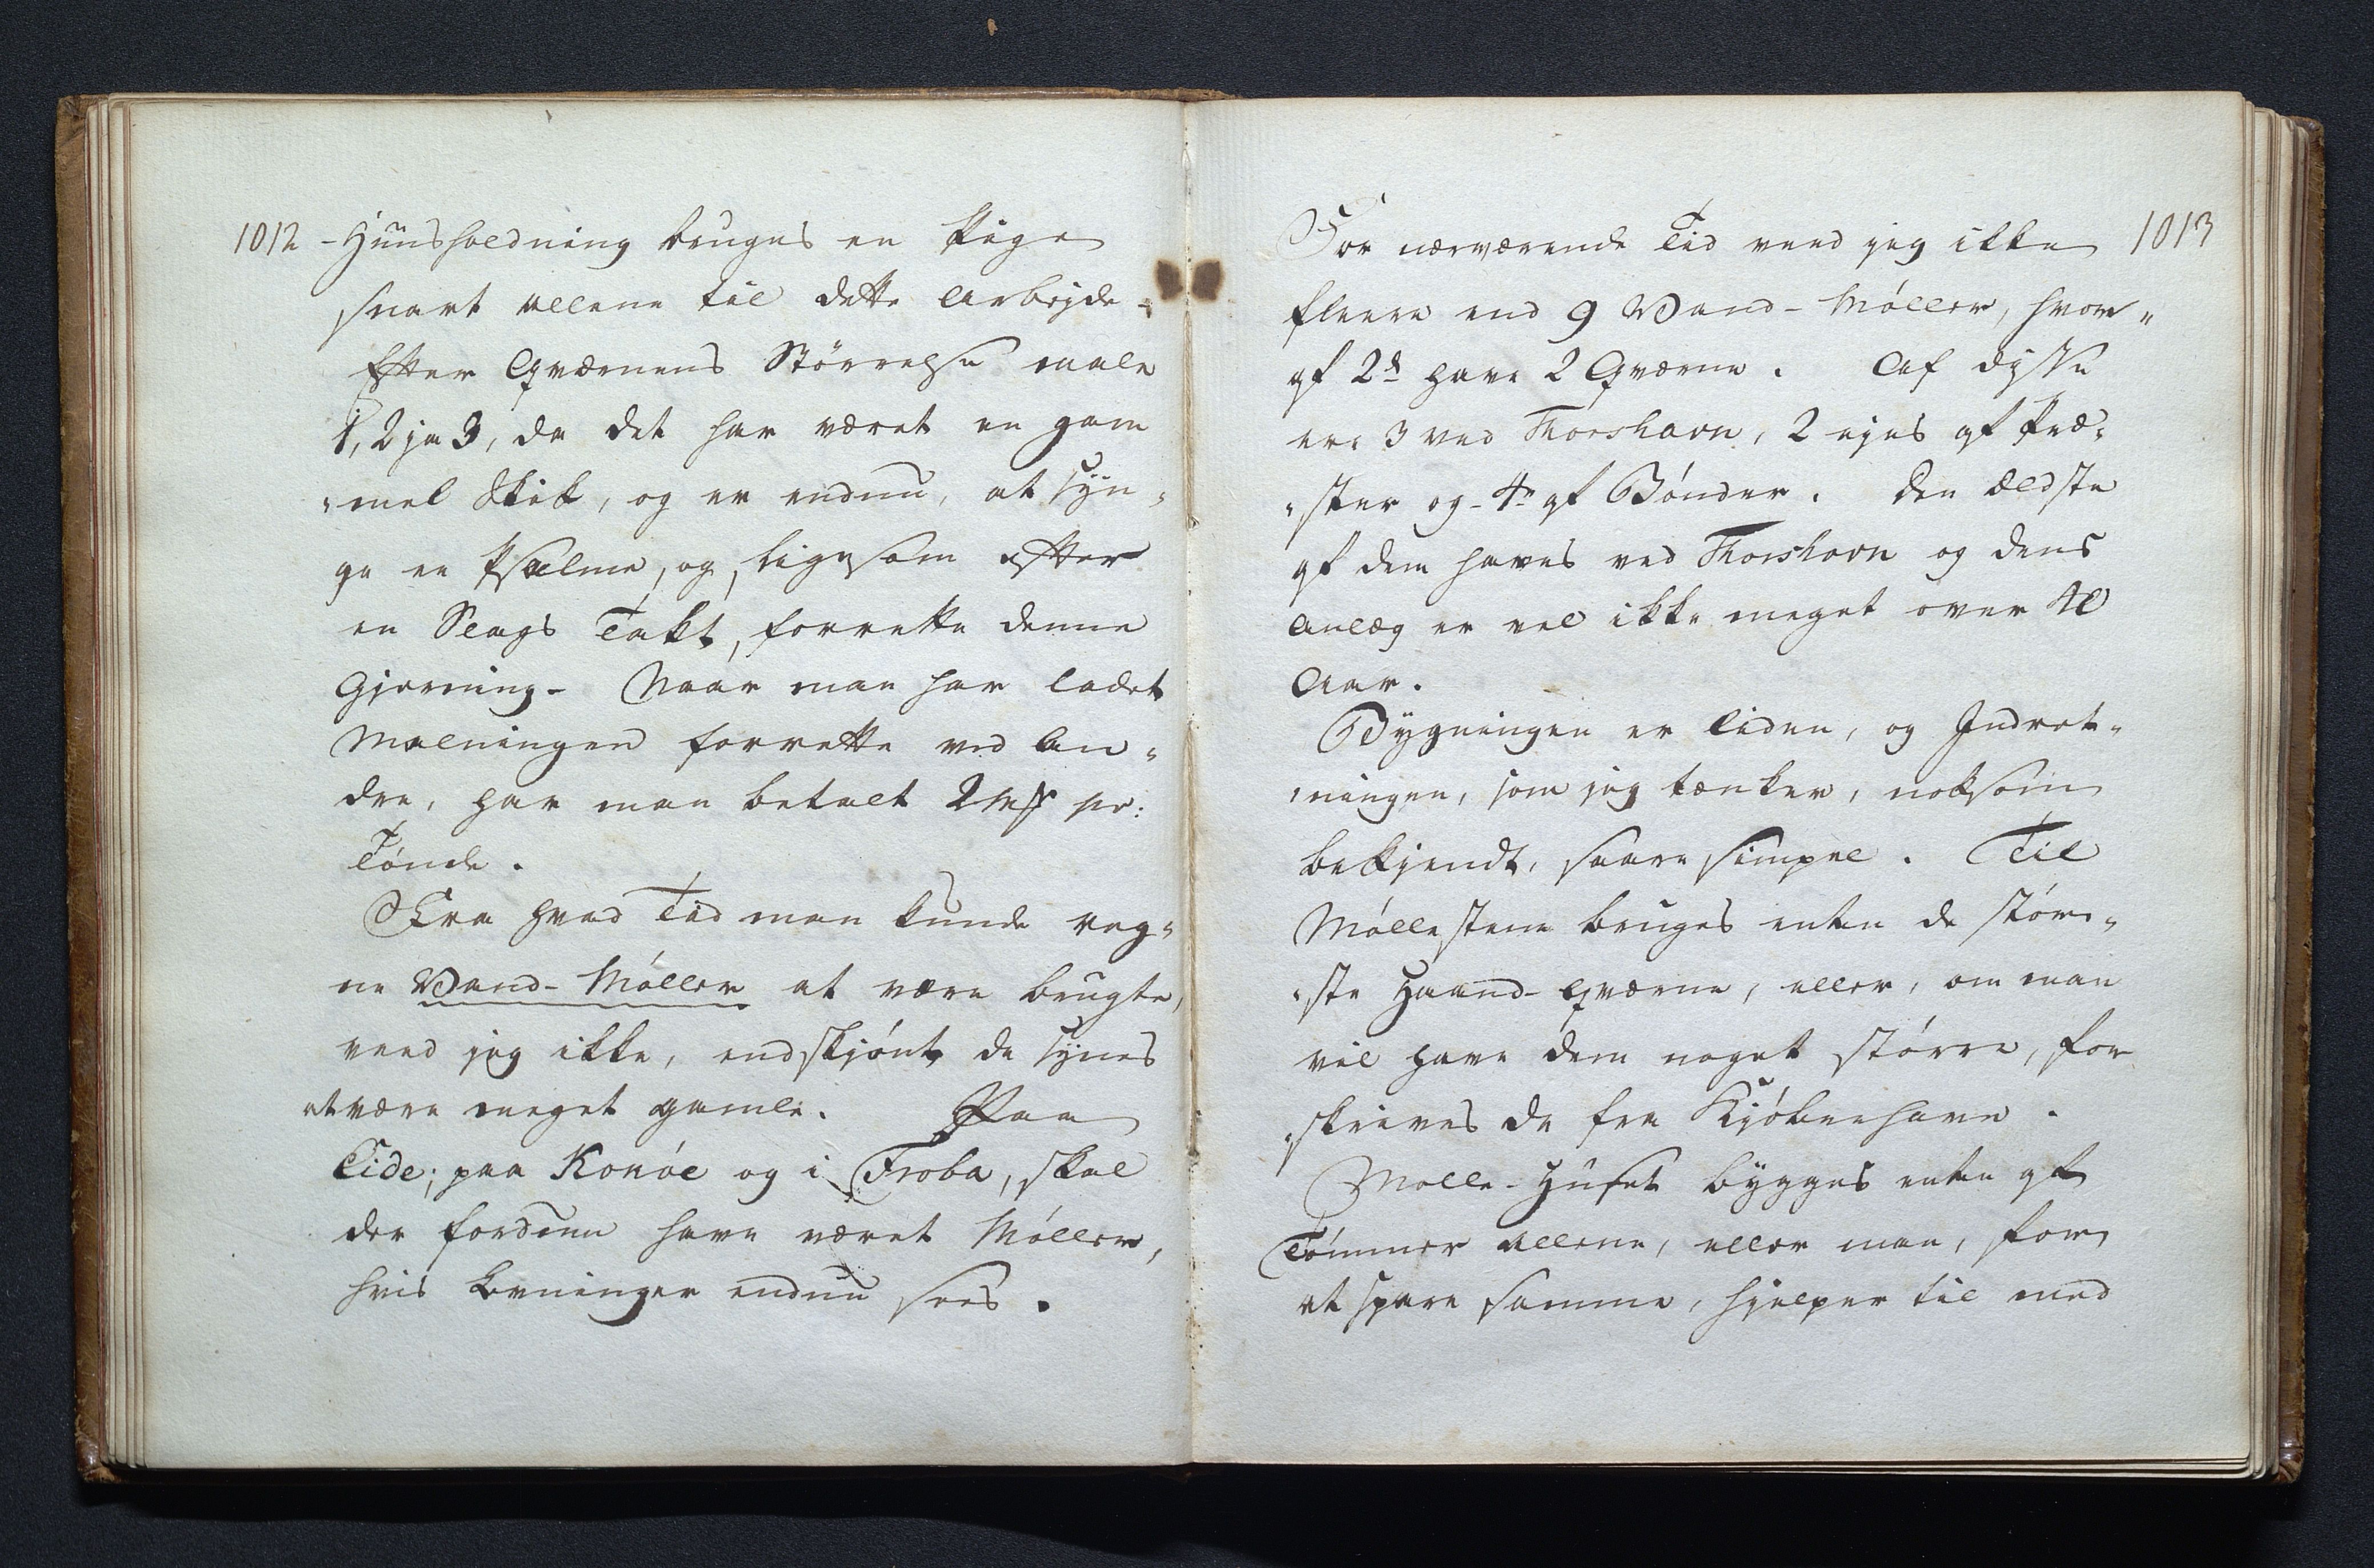 1012
-Huusholdning bruges en Pige
snart allene til dette Arbejde-
Efter Qværnens Störrelse male
1, 2 ja 3, da det har været en gam
"mel Skik, og er endnu, at syn"
ge en Psalme, og, ligesom efter
en Slags Takt, forrette denne
Gjerning- Naar man har ladet
Malningen forrette ved An"
dre, har man betalt 2 mſ pr:
Tönde.
Fra hvad Tid man kunde reg"
ne Vand-Möller at være brugte,
veed jeg ikke, endskjönt de synes
at være meget gamle. Paa
Eide; paa Konöe og i Froba, skal
der fordum have været Möller,
hvis Levninger endnu sees.
1013
For nærværende Tid veed jeg ikke
fleere end 9 Vand-Möller, hvor"
af 2de have 2 Qværne. Af disse
ere 3 ved Thorshavn, 2 ejes af Præ"
"ster og 4re af Bönder. Den Ældste
af dem haves ved Thorshavn og dens
Anlæg er vel ikke meget over 40
Aar.
Bygningen er liden, og Indret"
"ningen, som jeg tænker, noksom
bekjendt, saare simpel. Til
Möllestene bruges enten de stör"
"ste Haand-Qværne, eller, om man
vil have dem noget större, for
"skrives de fra Kjöbenhavn.
Mölle-Huset bygges enten af
Tömmer allene, eller man, for
at spare samme, hjelper til med